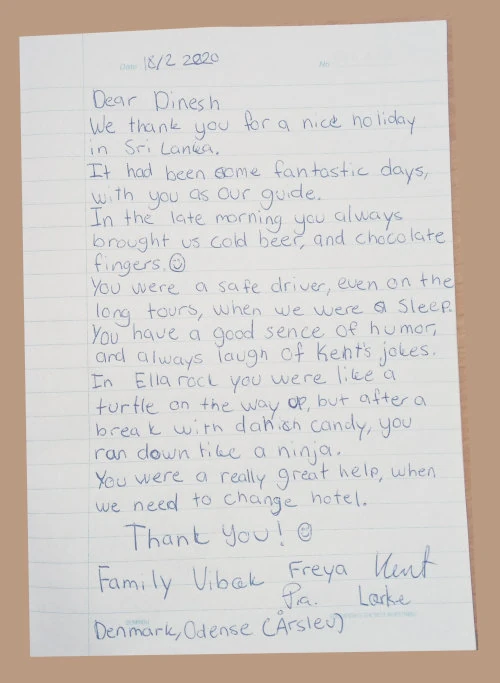 Date 18/2 2020 No.
Dear Dinesh
We thank you for a nice holiday
in Sri Lanka.
It had been some fantastic days,
with you as our guide.
In the late morning you always
brought us cold beer, and chocolate
fingers.☺
You were a safe driver, even on the
long tours, when we were a sleep.
You have a good sence of humor,
and always laugh of Kent's jokes.
In Ella rock you were like a
turtle on the way up, but after a
break with danish candy, you
ran down like a ninja.
You were a really great help, when
we need to change hotel.
Thank You! ☺
Family Vibæk Freya Kent
Pia Lærke
Denmark, Odense (Årslev)